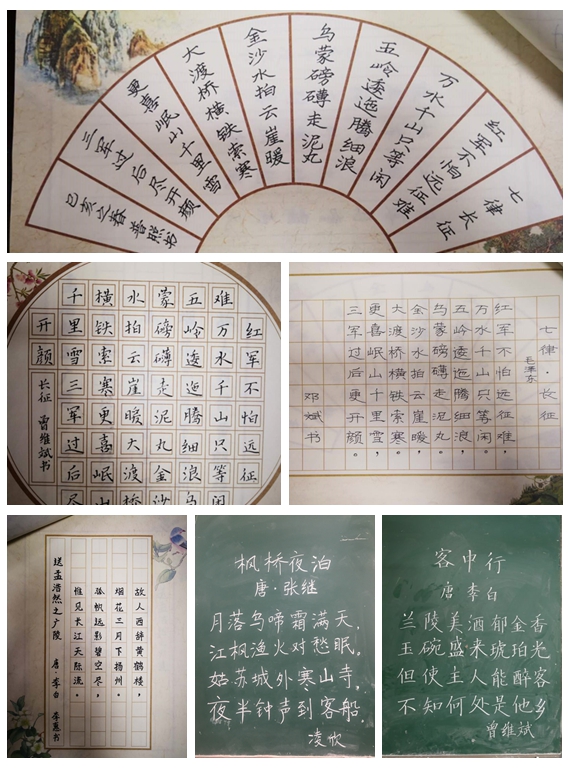 七律长征
红军不怕远征难
万水千山只等闲
五岭逶迤腾细浪
乌蒙磅礴走泥丸
金沙水拍云崖暖
大渡桥横铁索寒
更喜岷山千里雪
三军过后尽开颜
己亥之春普照书
红军不怕远征
难万水千山只等闲
五岭逶迤腾细浪乌
蒙磅礴走泥丸金沙
水拍云崖暖大渡桥
横铁索寒更喜岷山
千里雪三军过后尽
开颜
长征 曾维斌书
七律·长征
毛泽东
红军不怕远征难,
万水千山只等闲。
五岭逶迤腾细浪,
乌蒙磅礴走泥丸。
金沙水拍云崖暖,
大渡桥横铁索寒。
更喜岷山千里雪,
三军过后更开颜。
邓斌书
故人西辞黄鹤楼,
烟花三月下扬州。
孤帆远影碧空尽,
惟见长江天际流。
送孟浩然之广陵 唐 李白 李惠书
枫桥夜泊
唐·张继
月落乌啼霜满天,
江枫渔火对愁眠,
姑苏城外寒山寺,
夜半钟声到客船。
凌欣
客中行
唐 李白
兰陵美酒郁金香
玉碗盛来琥珀光
但使主人能醉客
不知何处是他乡
曾维斌